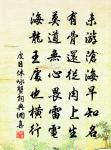 未游滄海早知名
有骨還從肉上生
莫道無心畏雷電
海龍王處也橫行
皮日休咏蟹詞典網書